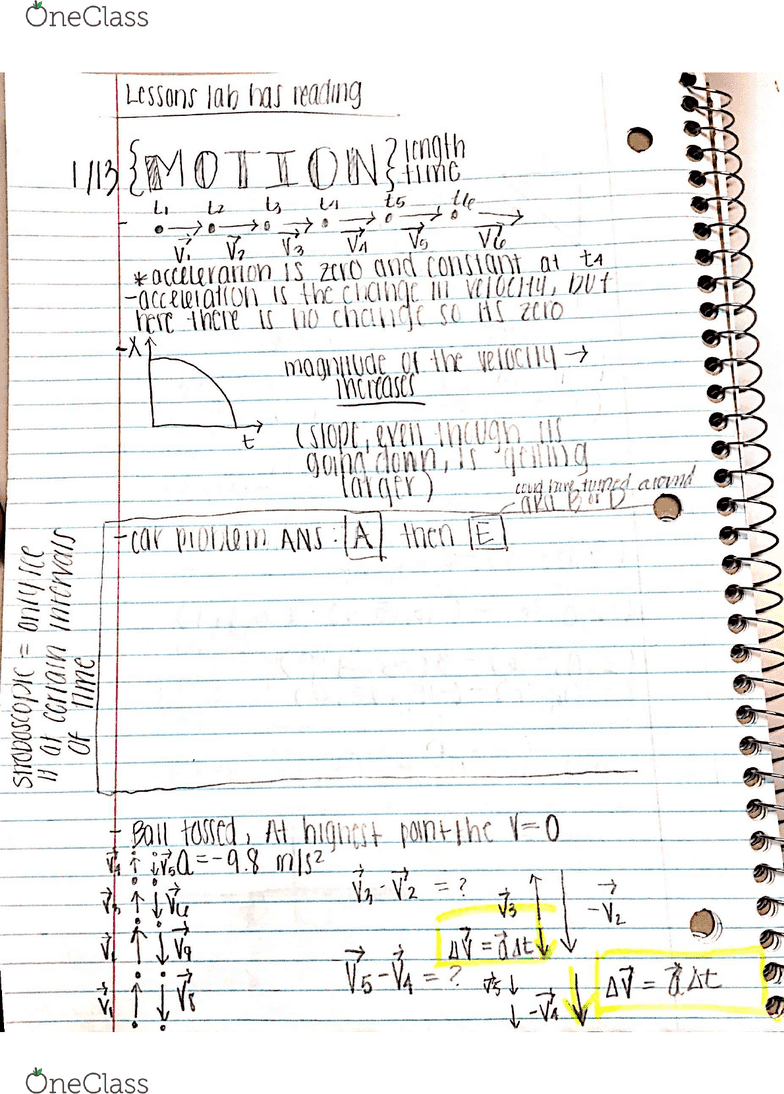 OneClass
Lessons lab has reading
1/13 {MOTION} length
time
t₁ t₂ t₃ t4 t5 t6
V⃗₁ V⃗₂ V⃗3 V⃗4 V⃗5 V⃗6
*acceleration is zero and constant at t4
-acceleration is the change in velocity, but
here there is no change so its zero
-X
t
magnitude of the velocity →
increases
(slope, even though its
going down, is getting
larger)
could have turned around
aka B or D
-car problem ANS: A then E
Stroboscopic = only see
it at certain intervals
of time
- Ball tossed, At highest point the V=0
V⃗4 V⃗5 a=-9.8 m/s²
V⃗3 V⃗6
V⃗₁ V⃗8
V⃗3 - V⃗2 = ?
V⃗3 -V⃗2
ΔV⃗ = a⃗Δt
V⃗5 - V⃗4 = ?
V⃗5 -V⃗4
ΔV⃗ = a⃗Δt
OneClass